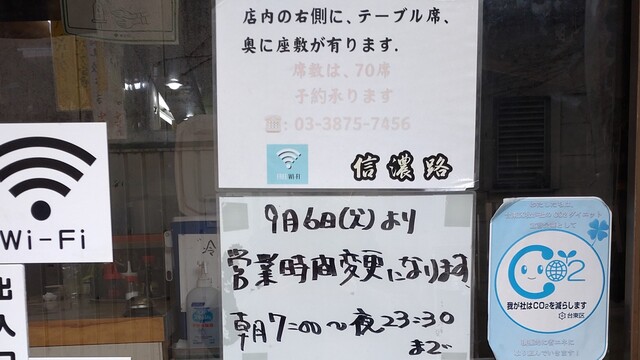 店内の右側に、テーブル席、
奥に座敷が有ります.
席数は、70席
予約承ります
☎: 03-3875-7456
信濃路
Wi-Fi
9月6日(火)より
営業時間変更になります
朝7:00〜夜23:30
まで
CO2
我が社はCO2を減らします
台東区
出入
冷